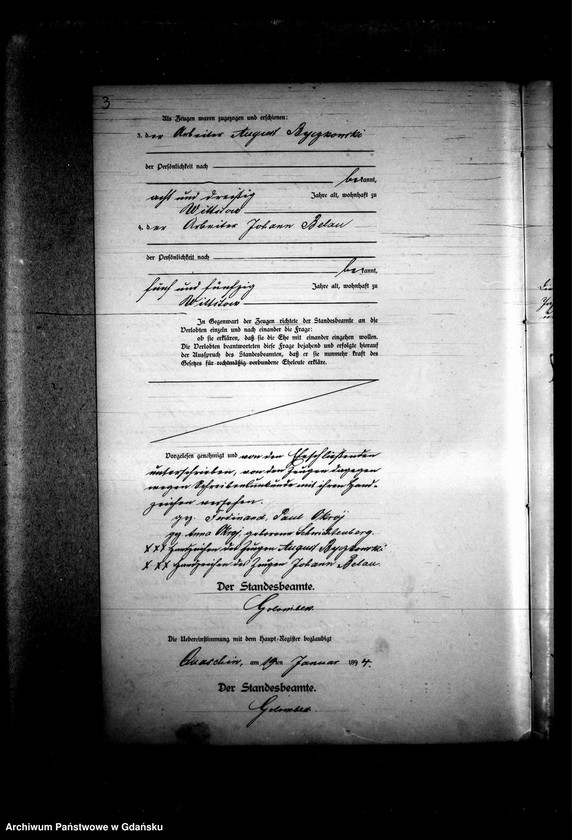 3
Als Zeugen waren zugezogen und erschienen:
3. der Arbeiter August Byczkowski
der Persönlichkeit nach
bekannt,
acht und dreißig Jahre alt, wohnhaft zu
Wittstock
4. der Arbeiter Johann Belau
der Persönlichkeit nach
bekannt,
fünf und fünfzig Jahre alt, wohnhaft zu
Wittstock
In Gegenwart der Zeugen richtete der Standesbeamte an die
Verlobten einzeln und nach einander die Frage:
ob sie erklären, daß sie die Ehe mit einander eingehen wollen.
Die Verlobten beantworteten diese Frage bejahend und erfolgte hierauf
der Ausspruch des Standesbeamten, daß er sie nunmehr kraft des
Gesetzes für rechtmäßig verbundene Eheleute erkläre.
Vorgelesen genehmigt und von den Eheschließenden
unterschrieben, von den Zeugen dagegen
wegen Schreibensunkunde mit ihren Hand-
zeichen versehen.
gez. Ferdinand, Paul Okroj
gez. Anna Okroj geborene
XXX Handzeichen des Zeugen August Byczkowski
XXX Handzeichen des Zeugen Johann Belau.
Der Standesbeamte.
Golombek.
Die Uebereinstimmung mit dem Haupt-Register beglaubigt
Quaschin, am 19ten Januar 1894.
Der Standesbeamte.
Golombek.
Archiwum Państwowe w Gdańsku